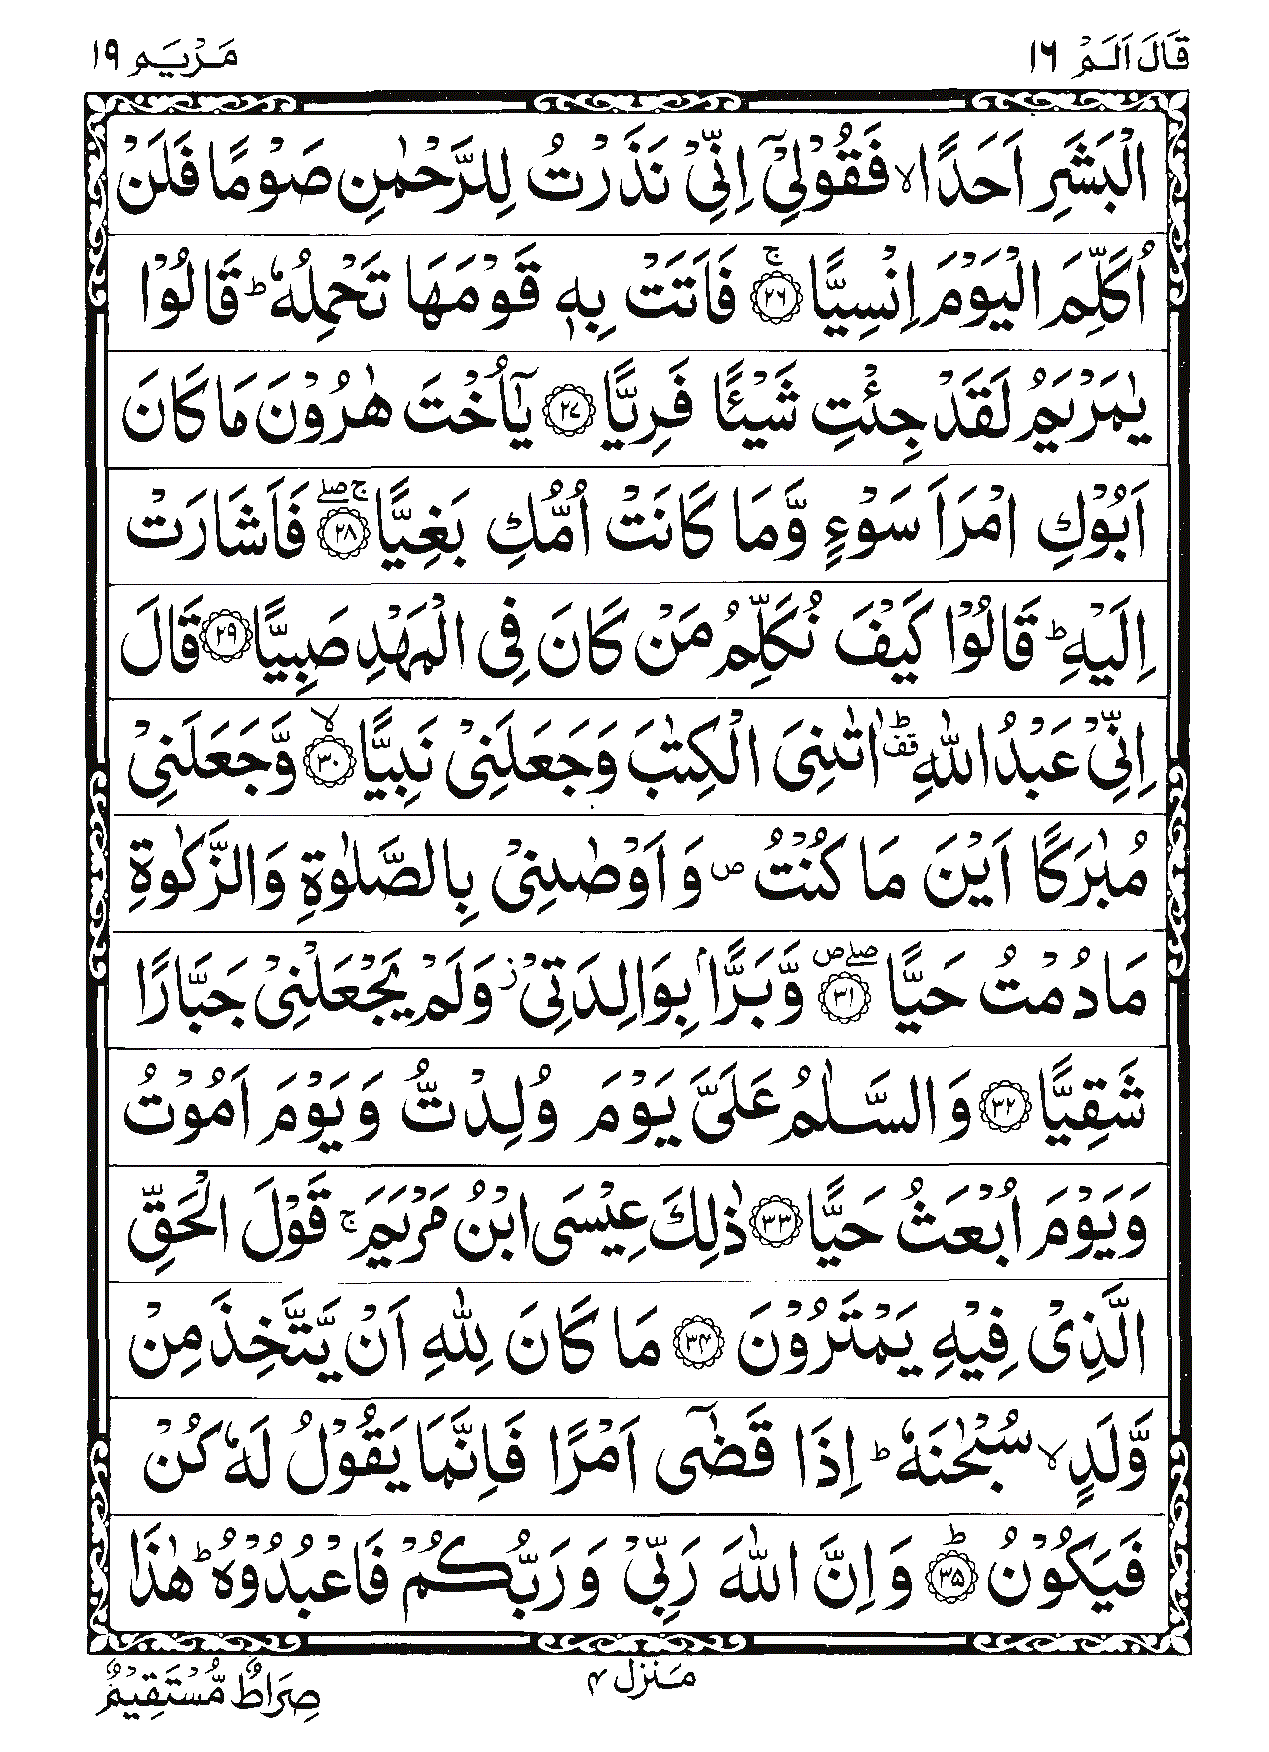 قَالَ اَلَمْ ١٦
مَرْيَم ١٩
الْبَشَرِ اَحَدًاۙ فَقُوْلِيْۤ اِنِّيْ نَذَرْتُ لِلرَّحْمٰنِ صَوْمًا فَلَنْ
اُكَلِّمَ الْيَوْمَ اِنْسِيًّاۚ ﴿٢٦﴾ فَاَتَتْ بِهٖ قَوْمَهَا تَحْمِلُهٗؕ قَالُوْا
يٰمَرْيَمُ لَقَدْ جِئْتِ شَيْـًٔا فَرِيًّا ﴿٢٧﴾ يٰۤاُخْتَ هٰرُوْنَ مَا كَانَ
اَبُوْكِ امْرَاَ سَوْءٍ وَّمَا كَانَتْ اُمُّكِ بَغِيًّاۖۚ ﴿٢٨﴾ فَاَشَارَتْ
اِلَيْهِؕ قَالُوْا كَيْفَ نُكَلِّمُ مَنْ كَانَ فِي الْمَهْدِ صَبِيًّا ﴿٢٩﴾ قَالَ
اِنِّيْ عَبْدُ اللّٰهِؕ قف اٰتٰىنِيَ الْكِتٰبَ وَجَعَلَنِيْ نَبِيًّاۙ ﴿٣٠﴾ وَّجَعَلَنِيْ
مُبٰرَكًا اَيْنَ مَا كُنْتُ ص وَاَوْصٰىنِيْ بِالصَّلٰوةِ وَالزَّكٰوةِ
مَا دُمْتُ حَيًّاۖ ص ﴿٣١﴾ وَّبَرًّۢا بِوَالِدَتِيْ ز وَلَمْ يَجْعَلْنِيْ جَبَّارًا
شَقِيًّا ﴿٣٢﴾ وَالسَّلٰمُ عَلَيَّ يَوْمَ وُلِدْتُّ وَيَوْمَ اَمُوْتُ
وَيَوْمَ اُبْعَثُ حَيًّا ﴿٣٣﴾ ذٰلِكَ عِيْسَى ابْنُ مَرْيَمَۚ قَوْلَ الْحَقِّ
الَّذِيْ فِيْهِ يَمْتَرُوْنَ ﴿٣٤﴾ مَا كَانَ لِلّٰهِ اَنْ يَّتَّخِذَ مِنْ
وَّلَدٍۙ سُبْحٰنَهٗؕ اِذَا قَضٰۤى اَمْرًا فَاِنَّمَا يَقُوْلُ لَهٗ كُنْ
فَيَكُوْنُؕ ﴿٣٥﴾ وَاِنَّ اللّٰهَ رَبِّيْ وَرَبُّكُمْ فَاعْبُدُوْهُؕ هٰذَا
مَنزل ۴
صِرَاطٌ مُّسْتَقِيْمٌ